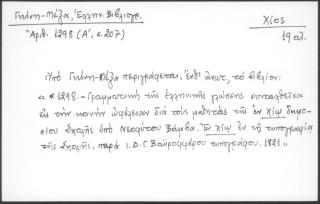 Γκίνη-Μέξα, Ἑλλην. Βιβλιογρ.
Χίος
Ἀριθ. 1298 (Α', σ. 207)
19 αἰ.
Ὑπό Γκίνη-Μέξα περιγράφεται, ἔνθ' ἄνωτ., τό βιβλίον:
« * 1298. - Γραμματική τῆς ἑλληνικῆς γλώσσης συνταχθεῖσα
εἰς τήν κοινήν ὠφέλειαν διά τούς μαθητάς τῆς ἐν Χίῳ δημο-
σίου Σχολῆς ὑπό Νεοφύτου Βάμβα. Ἐν Χίῳ ἐν τῇ τυπογραφίᾳ
τῆς Σχολῆς, παρά Ι.Δ.Γ. Βαϋροφφέρου τυπογράφου. 1821 »